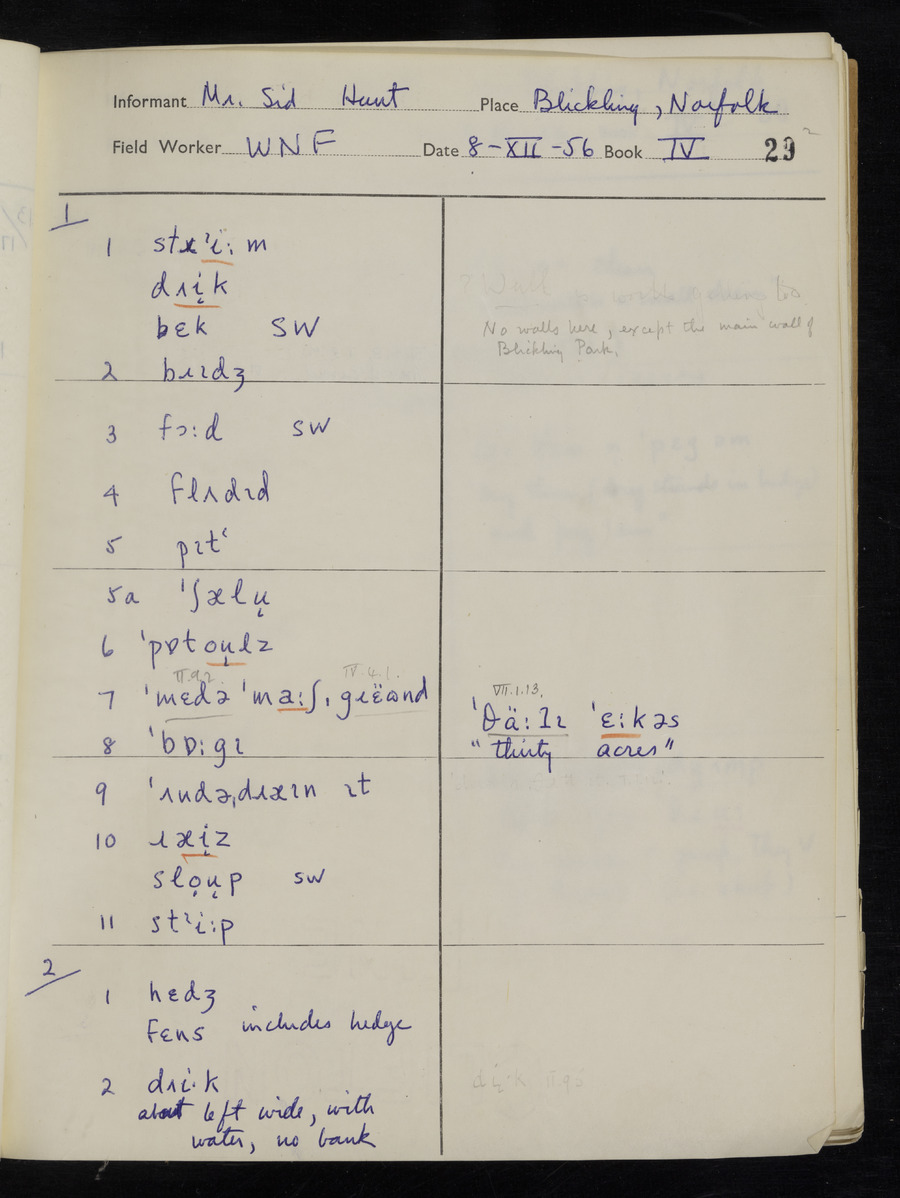 Informant Mr. Sid Hunt Place Blickling, Norfolk
Field Worker WNF Date 8-XII-56 Book IV 29
1
1 stɹˀi̤ː m
dɹi̜k
bɛk SW
No walls here, except the main wall of
Blickling Park.
2 bɹɪdʒ
3 fɔːd SW
4 flʌdɪd
5 pɪtʻ
5a ˈʃælu̜
6 ˈpɒtou̜lz
II.9.2 IV.4.1.
7 ˈmɛdə ˈmaːʃ, gɹëɷnd
VII.1.13.
ˈθäːʔɪ ˈɛːkəs
8 ˈbɒːgɪ
"thirty acres"
9 ˈʌndəˌdɹæɪn ɪt
10 ɹæi̜z
slo̜u̜p SW
11 stˀiːp
2
1 hɛdʒ
fɛns includes hedge
2 dɹi·k
about left wide, with
water, no bank